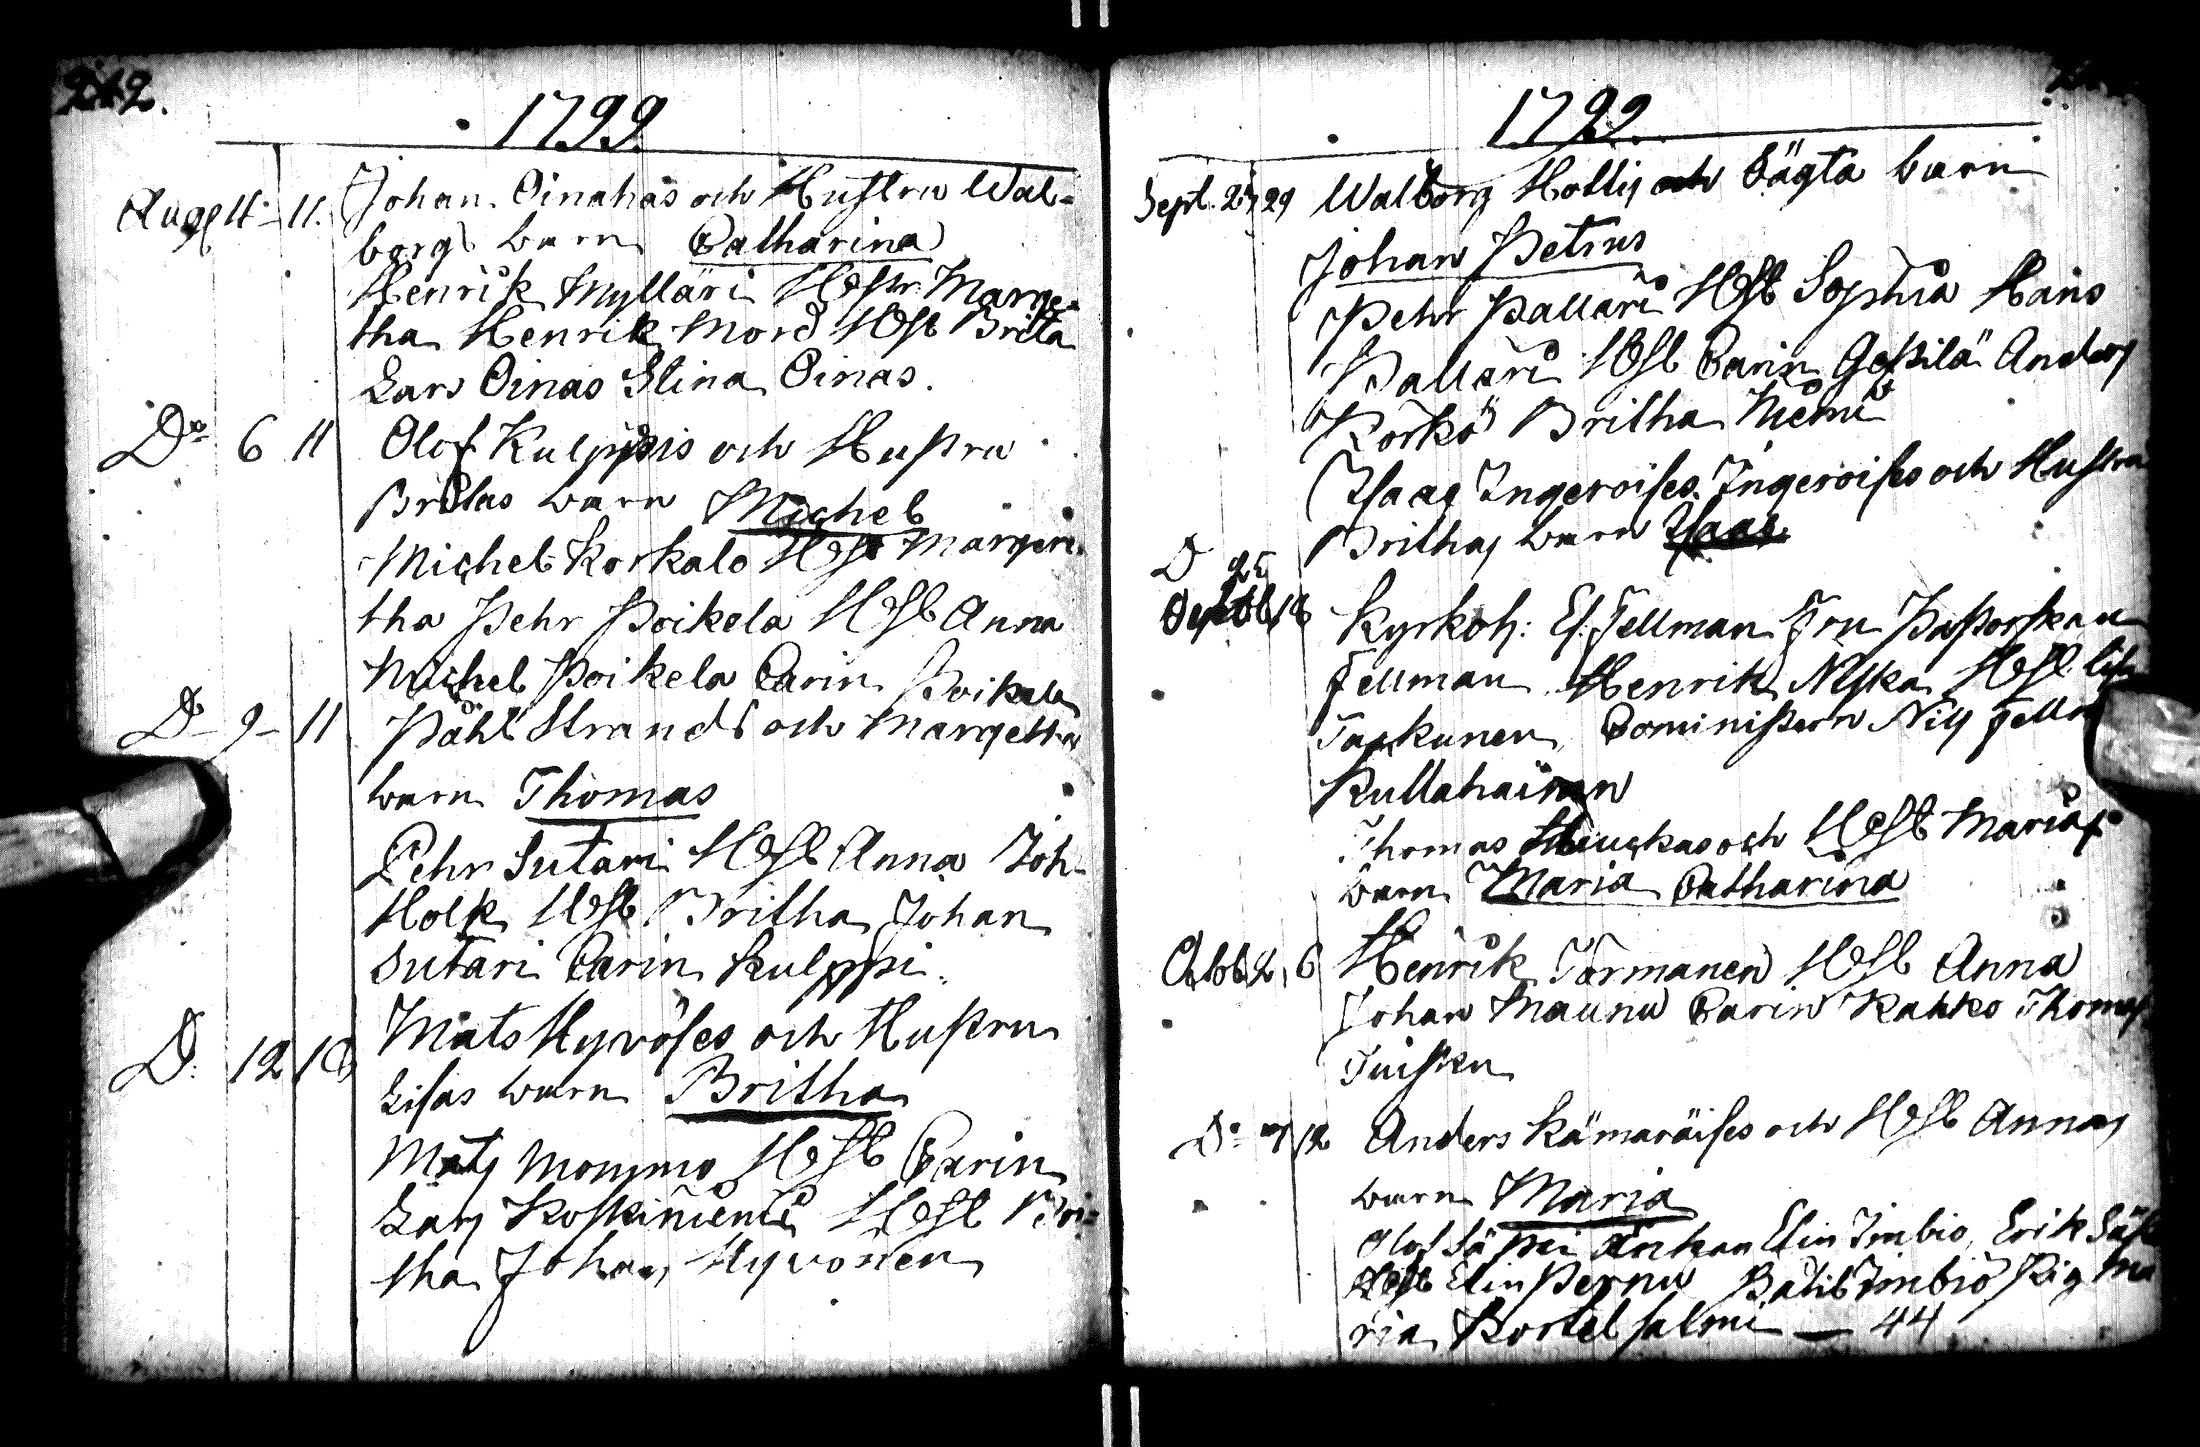 242.
1799.
Aug. 4 11. Johan Oinahas och Hustru Wal-
borgs barn Catharina
Henrik Mylläri Hustr. Marge-
tha Henrik Mord Hust Brita
Lars Oinas Stina Oinas.
Do 6 11 Olof Kulppis och Hustru
Britas barn Michel
Michel Korkalo Hust Margeri
tha Pehr Poikela Hust Anna
Michel Poikela Carin Poikela
D 9 11 Påhl Strands och Margetha
barn Thomas
Pehr Sutari Hust Anna Joh.
Holk Hust Britha Johan
Sutari Carin Kulppi.
D. 12 18 Mats Hyvöses och Hustru
Lisas barn Britha
Mats Mommo Hust Carin
Lars Koskiniemi Hust Bri-
tha Johan Hyvönen
1799.
Sept. 27 29 Walborg Hollis och Eägta barn
Johan Petrus
Pehr Pallari Hust Sophia Hans
Pallari Hust Carin Anders
Körkö Britha Niemi
Isaac Ingeroises Ingeroises och Hustru
Brithas barn Isaac
D 25
Kyrkoh: Es. Fellman Fru Pastorskan
Fellman Henrik Niska Hust
Taskunen, Cominístern Nils
Kullahainen
Thomas och Hust Marias
barn Maria Catharina
Octob. 2, 6 Henrik Törmänen Hust Anna
Johan Maunu Carin Kakko Thomas
Tuisku
Do 7 12 Anders Kämäräises och Hust Annas
barn Maria
Olof Säppi Enkan Elin Imbio, Erik
Hust Elin Pernu Påhl Imbio Pig Ma
ria Kortelsalmi — 44